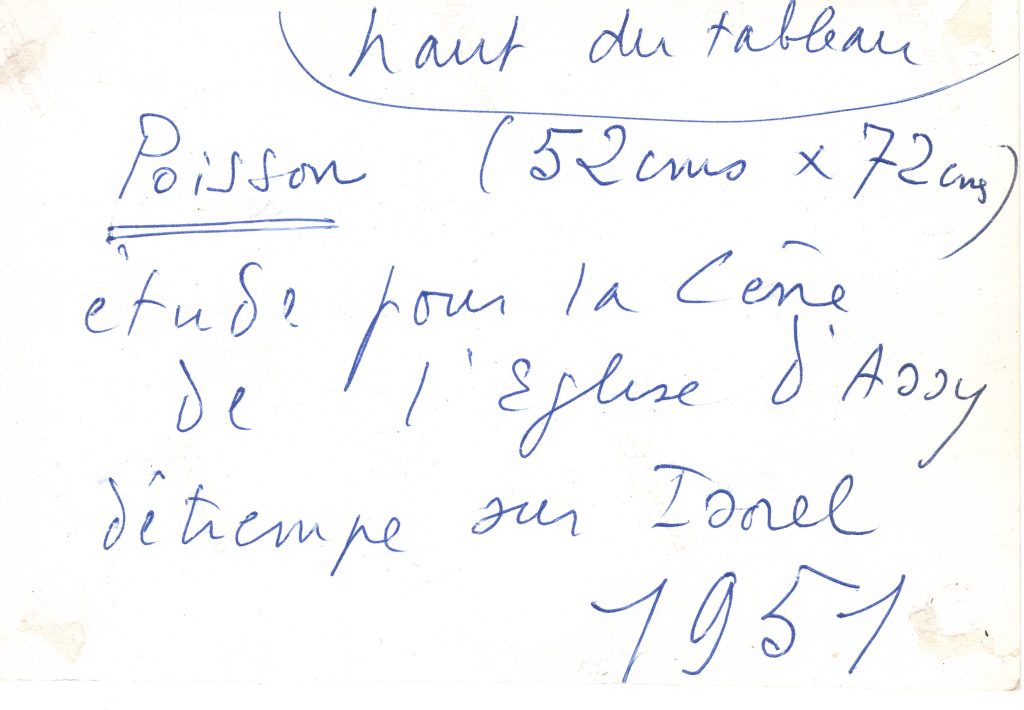 haut du tableau
Poisson (52cms x 72cms)
étude pour la Cêne
de l'Eglise d'Assy
détrempe sur Isorel
1951